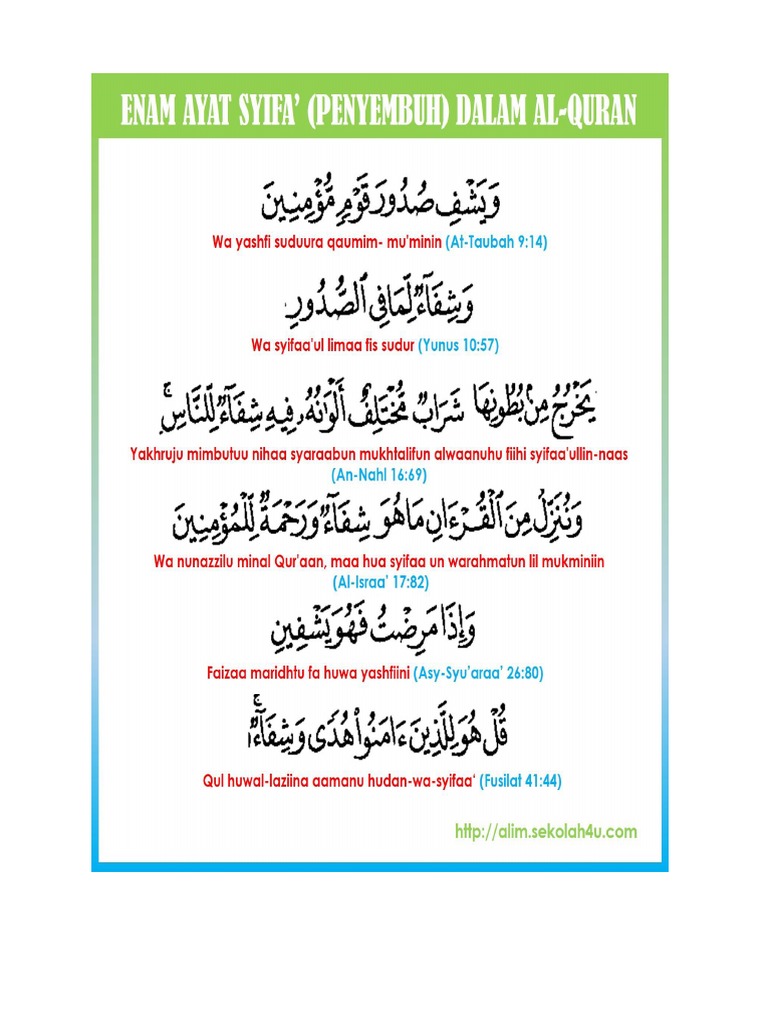 ENAM AYAT SYIFA’ (PENYEMBUH) DALAM AL-QURAN
وَيَشْفِ صُدُورَ قَوْمٍ مُّؤْمِنِينَ
Wa yashfi suduura qaumim- mu'minin (At-Taubah 9:14)
وَشِفَآءٌ لِّمَا فِي ٱلصُّدُورِ
Wa syifaa'ul limaa fis sudur (Yunus 10:57)
يَخْرُجُ مِنۢ بُطُونِهَا شَرَابٌ مُّخْتَلِفٌ أَلْوَٰنُهُۥ فِيهِ شِفَآءٌ لِّلنَّاسِ ۗ
Yakhruju mimbutuu nihaa syaraabun mukhtalifun alwaanuhu fiihi syifaa'ullin-naas
(An-Nahl 16:69)
وَنُنَزِّلُ مِنَ ٱلْقُرْءَانِ مَا هُوَ شِفَآءٌ وَرَحْمَةٌ لِّلْمُؤْمِنِينَ
Wa nunazzilu minal Qur'aan, maa hua syifaa un warahmatun lil mukminiin
(Al-Israa' 17:82)
وَإِذَا مَرِضْتُ فَهُوَ يَشْفِينِ
Faizaa maridhtu fa huwa yashfiini (Asy-Syu’araa’ 26:80)
قُلْ هُوَ لِلَّذِينَ ءَامَنُوا۟ هُدًى وَشِفَآءٌ ۖ
Qul huwal-laziina aamanu hudan-wa-syifaa‘ (Fusilat 41:44)
http://alim.sekolah4u.com